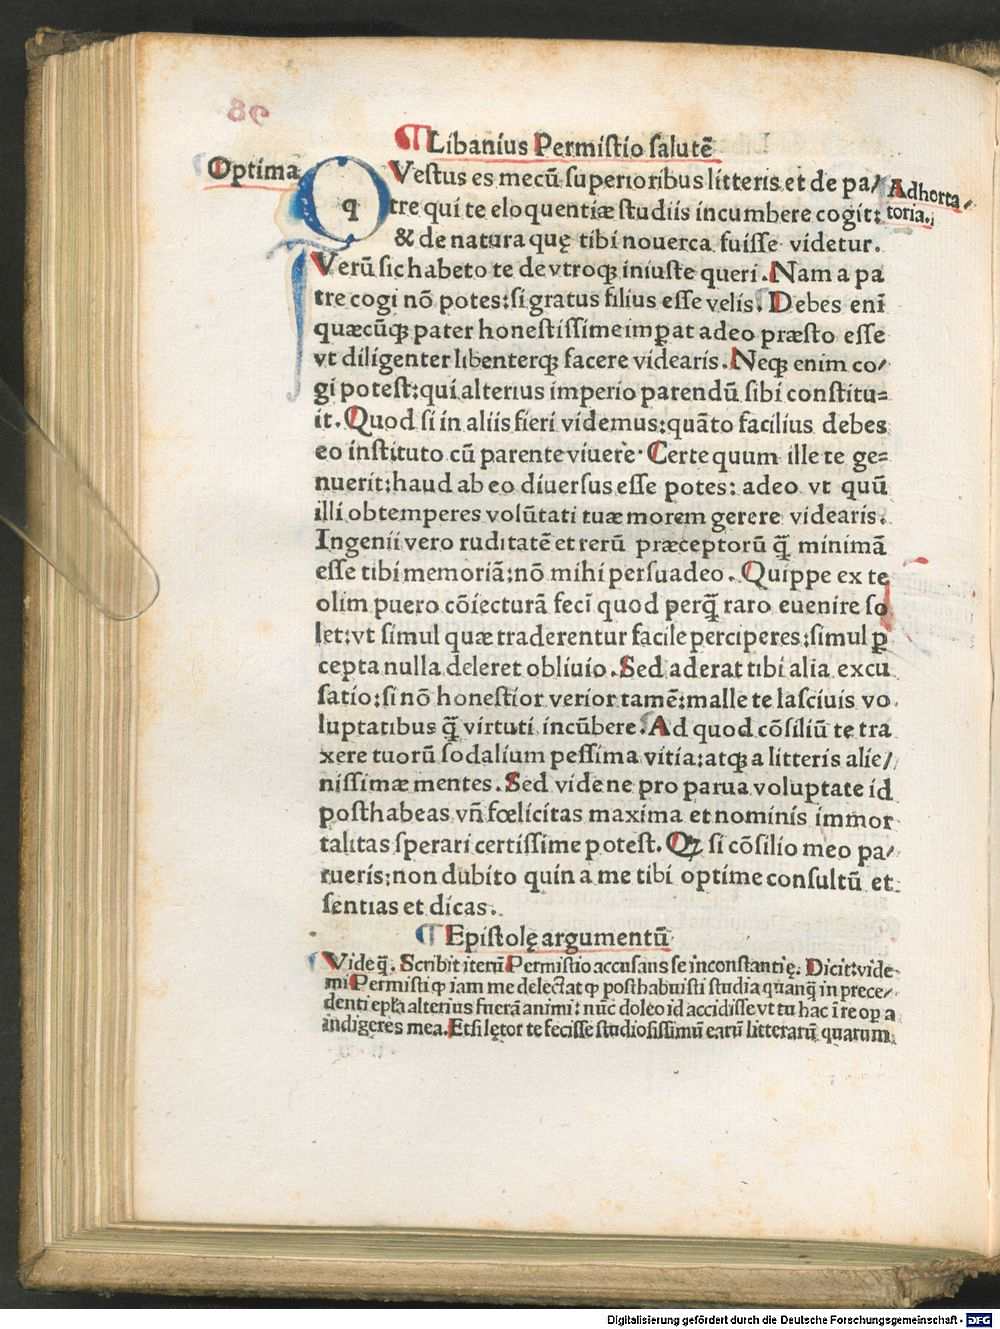 ¶Libanius Permistio salutē
Optima
QVestus es mecū superioribus litteris et de pa/
Adhorta/
toria.
tre qui te eloquentiæ studiis incumbere cogit:
& de natura quę tibi nouerca fuisse videtur.
Verū sic habeto te de vtroqꝫ iniuste queri. Nam a pa
tre cogi nō potes: si gratus filius esse velis. Debes enī
quæcūqꝫ pater honestissime imꝑat adeo præsto esse
vt diligenter libenterqꝫ facere videaris. Neqꝫ enim co/
gi potest: qui alterius imperio parendū sibi constitu=
it. Quod si in aliis fieri videmus: quāto facilius debes
eo instituto cū parente viuere. Certe quum ille te ge=
nuerit: haud ab eo diuersus esse potes: adeo vt quū
illi obtemperes volūtati tuæ morem gerere videaris.
Ingenii vero ruditatē et rerū præceptorū q̄ minimā
esse tibi memoriā: nō mihi persuadeo. Quippe ex te
olim puero cōiecturā feci quod perq̄ raro euenire so
let: vt simul quæ traderentur facile perciperes: simul ꝑ
cepta nulla deleret obliuio. Sed aderat tibi alia excu
satio: si nō honestior verior tamē: malle te lasciuis vo
luptatibus q̄ virtuti incūbere. Ad quod cōsiliū te tra
xere tuorū sodalium pessima vitia: atqꝫ a litteris alie/
nissimæ mentes. Sed vide ne pro parua voluptate id
posthabeas vn̄ fœlicitas maxima et nominis immor
talitas sperari certissime potest. Qꝫ si cōsilio meo pa/
rueris: non dubito quin a me tibi optime consultū et
sentias et dicas.
¶Epistolę argumentū
Vide q̄. Scribit iterū Permistio accusans se inconstantię. Dicit: vide
mi Permisti ꝙ iam me delectat ꝙ posthabuisti studia quanq̄ in prece/
denti epl̄a alterius fuerā animi: nūc doleo id accidisse vt tu hac ī re oꝑa
indigeres mea. Etsi lętor te fecisse studiosissimū earū litterarū quarum
Digitalisierung gefördert durch die Deutsche Forschungsgemeinschaft - DFG